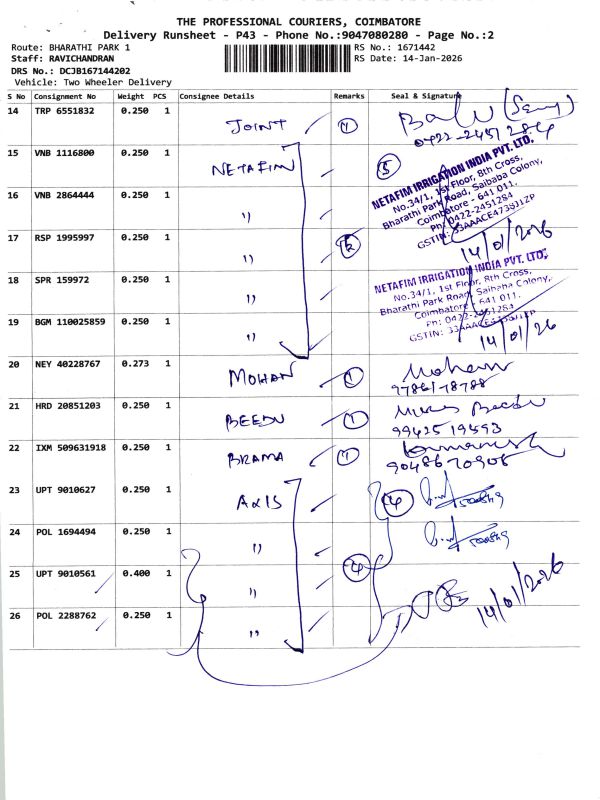 THE PROFESSIONAL COURIERS, COIMBATORE
Delivery Runsheet - P43 - Phone No.:9047080280 - Page No.:2
Route: BHARATHI PARK 1
RS No.: 1671442
Staff: RAVICHANDRAN
RS Date: 14-Jan-2026
DRS No.: DCJB167144202
Vehicle: Two Wheeler Delivery
S No Consignment No Weight PCS Consignee Details Remarks Seal & Signature
14 TRP 6551832 0.250 1 JOINT 1
0422-2457284
15 VNB 1116800 0.250 1 NETAFIM 5
NETAFIM IRRIGATION INDIA PVT. LTD.
No.34/1, 1st Floor, 8th Cross,
Bharathi Park Road, Saibaba Colony,
Coimbatore - 641 011.
Ph: 0422-2451284
GSTIN: 33AAACE4738J1ZP
16 VNB 2864444 0.250 1 "
14/01/2026
17 RSP 1995997 0.250 1 "
18 SPR 159972 0.250 1 "
NETAFIM IRRIGATION INDIA PVT. LTD.
No.34/1, 1st Floor, 8th Cross,
Bharathi Park Road, Saibaba Colony,
Coimbatore - 641 011.
Ph: 0422-2451284
19 BGM 110025859 0.250 1 "
14/01/26
20 NEY 40228767 0.273 1 MOHAN 1 Mohan
97861 78788
21 HRD 20851203 0.250 1 BEEDU 1
99425 19593
22 IXM 509631918 0.250 1 BRAMA 1
90486 70908
23 UPT 9010627 0.250 1 AXIS 4
24 POL 1694494 0.250 1 "
25 UPT 9010561 0.400 1 " 4
26 POL 2288762 0.250 1 "
14/01/2026